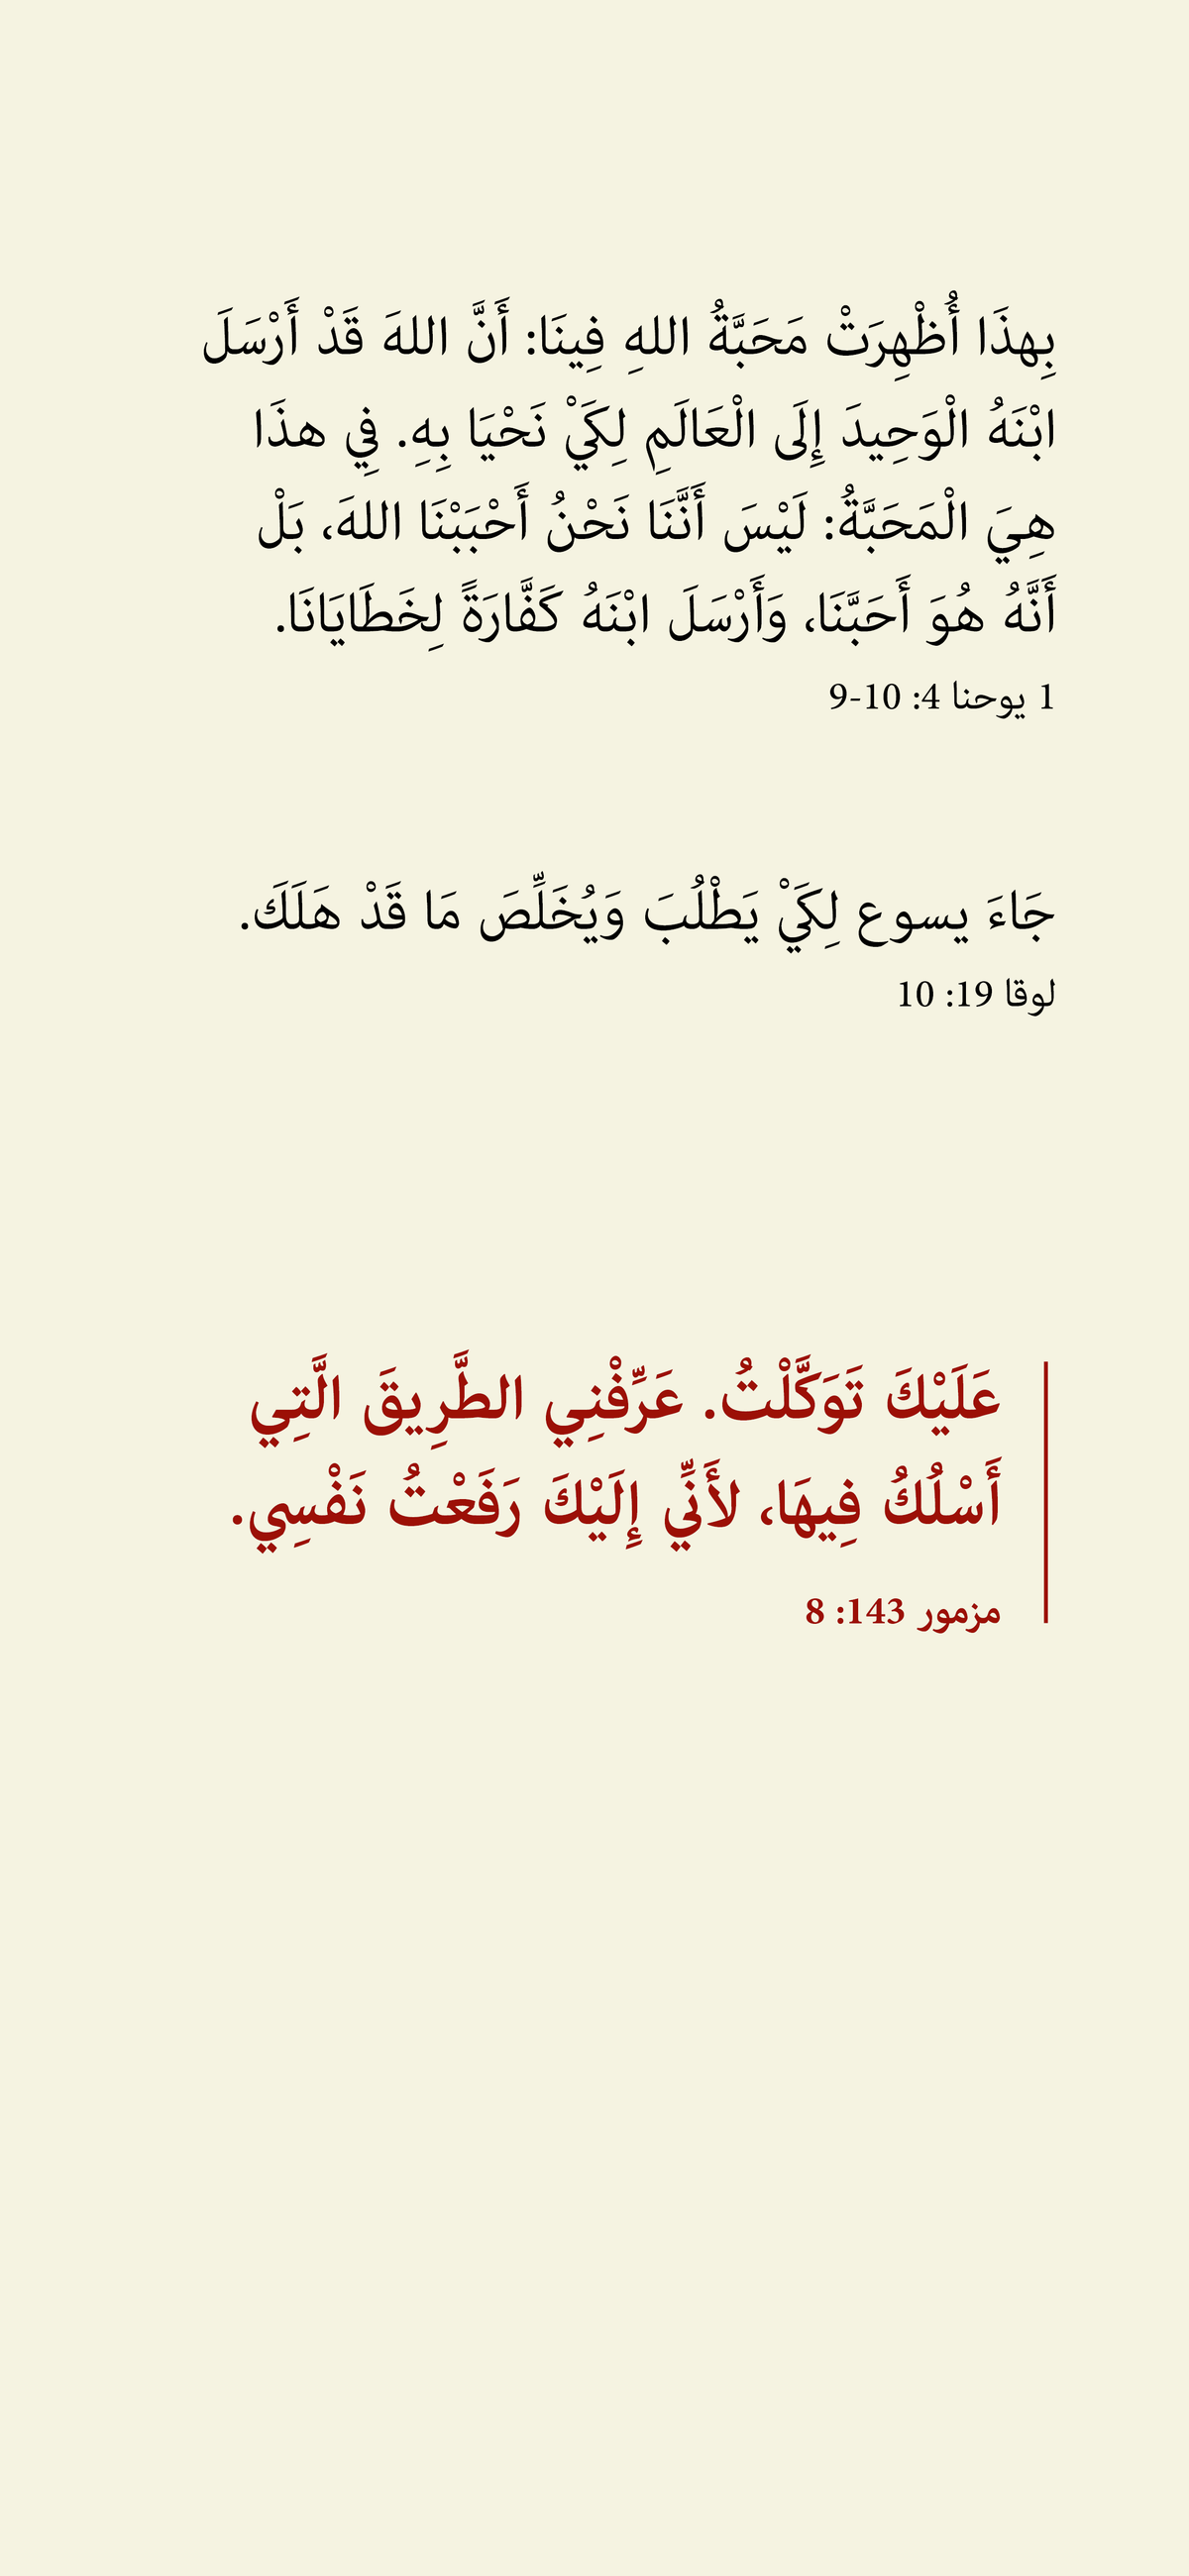 بِهذَا أُظْهِرَتْ مَحَبَّةُ اللهِ فِينَا: أَنَّ اللهَ قَدْ أَرْسَلَ
ابْنَهُ الْوَحِيدَ إِلَى الْعَالَمِ لِكَيْ نَحْيَا بِهِ. فِي هذَا
هِيَ الْمَحَبَّةُ: لَيْسَ أَنَّنَا نَحْنُ أَحْبَبْنَا اللهَ، بَلْ
أَنَّهُ هُوَ أَحَبَّنَا، وَأَرْسَلَ ابْنَهُ كَفَّارَةً لِخَطَايَانَا.
1 يوحنا 4: 9-10
جَاءَ يسوع لِكَيْ يَطْلُبَ وَيُخَلِّصَ مَا قَدْ هَلَكَ.
لوقا 19: 10
عَلَيْكَ تَوَكَّلْتُ. عَرِّفْنِي الطَّرِيقَ الَّتِي
أَسْلُكُ فِيهَا، لأَنِّي إِلَيْكَ رَفَعْتُ نَفْسِي.
مزمور 143: 8